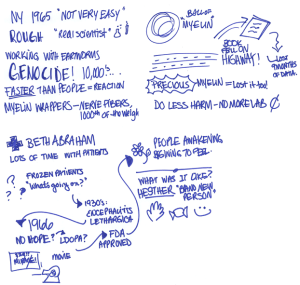 NY 1965 "NOT VERY EASY"
ROUGH "REAL SCIENTIST"
WORKING WITH EARTHWORMS
GENOCIDE! 10,000's...
FASTER THAN PEOPLE = REACTION
MYELIN WRAPPERS - NERVE FIBERS,
1000th of the Weigh
MYELIN
BOOK
FELL ON
HIGHWAY!
LOST
9 MONTHS
OF DATA.
PRECIOUS MYELIN = Lost it too!
DO LESS HARM - NO MORE LAB
BETH ABRAHAM
LOTS OF TIME WITH PATIENTS
? FROZEN PATIENTS
"What's going on?"
? ?
1930's:
ENCEPHALITIS
LETHARGICA
1966
NO HOPE? LDOPA?
FDA
APPROVED
movie
PEOPLE AWAKENING
BEGINNING TO FEEL.
WHAT WAS IT LIKE?
HESTHER "BRAND NEW
PERSON"